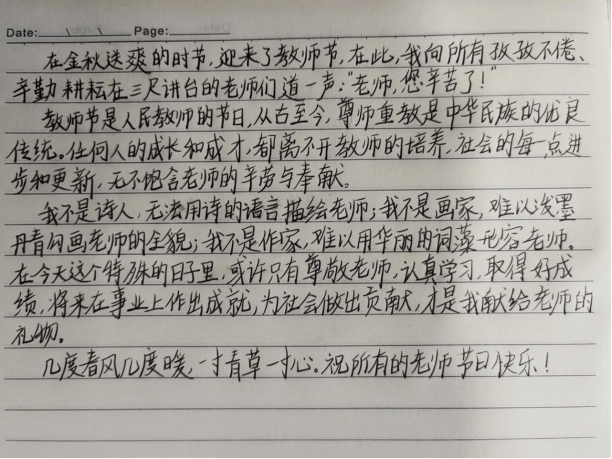 Date: \ \ Page:
在金秋送爽的时节,迎来了教师节,在此,我向所有孜孜不倦、
辛勤耕耘在三尺讲台的老师们道一声:“老师,您辛苦了!”
教师节是人民教师的节日,从古至今,尊师重教是中华民族的优良
传统。任何人的成长和成才,都离不开教师的培养,社会的每一点进
步和更新,无不饱含老师的辛劳与奉献。
我不是诗人,无法用诗的语言描绘老师;我不是画家,难以泼墨
丹青勾画老师的全貌;我不是作家,难以用华丽的词藻形容老师。
在今天这个特殊的日子里,或许只有尊敬老师,认真学习,取得好成
绩,将来在事业上作出成就,为社会做出贡献,才是我献给老师的
礼物。
几度春风几度暖,一寸青草一寸心。祝所有的老师节日快乐!